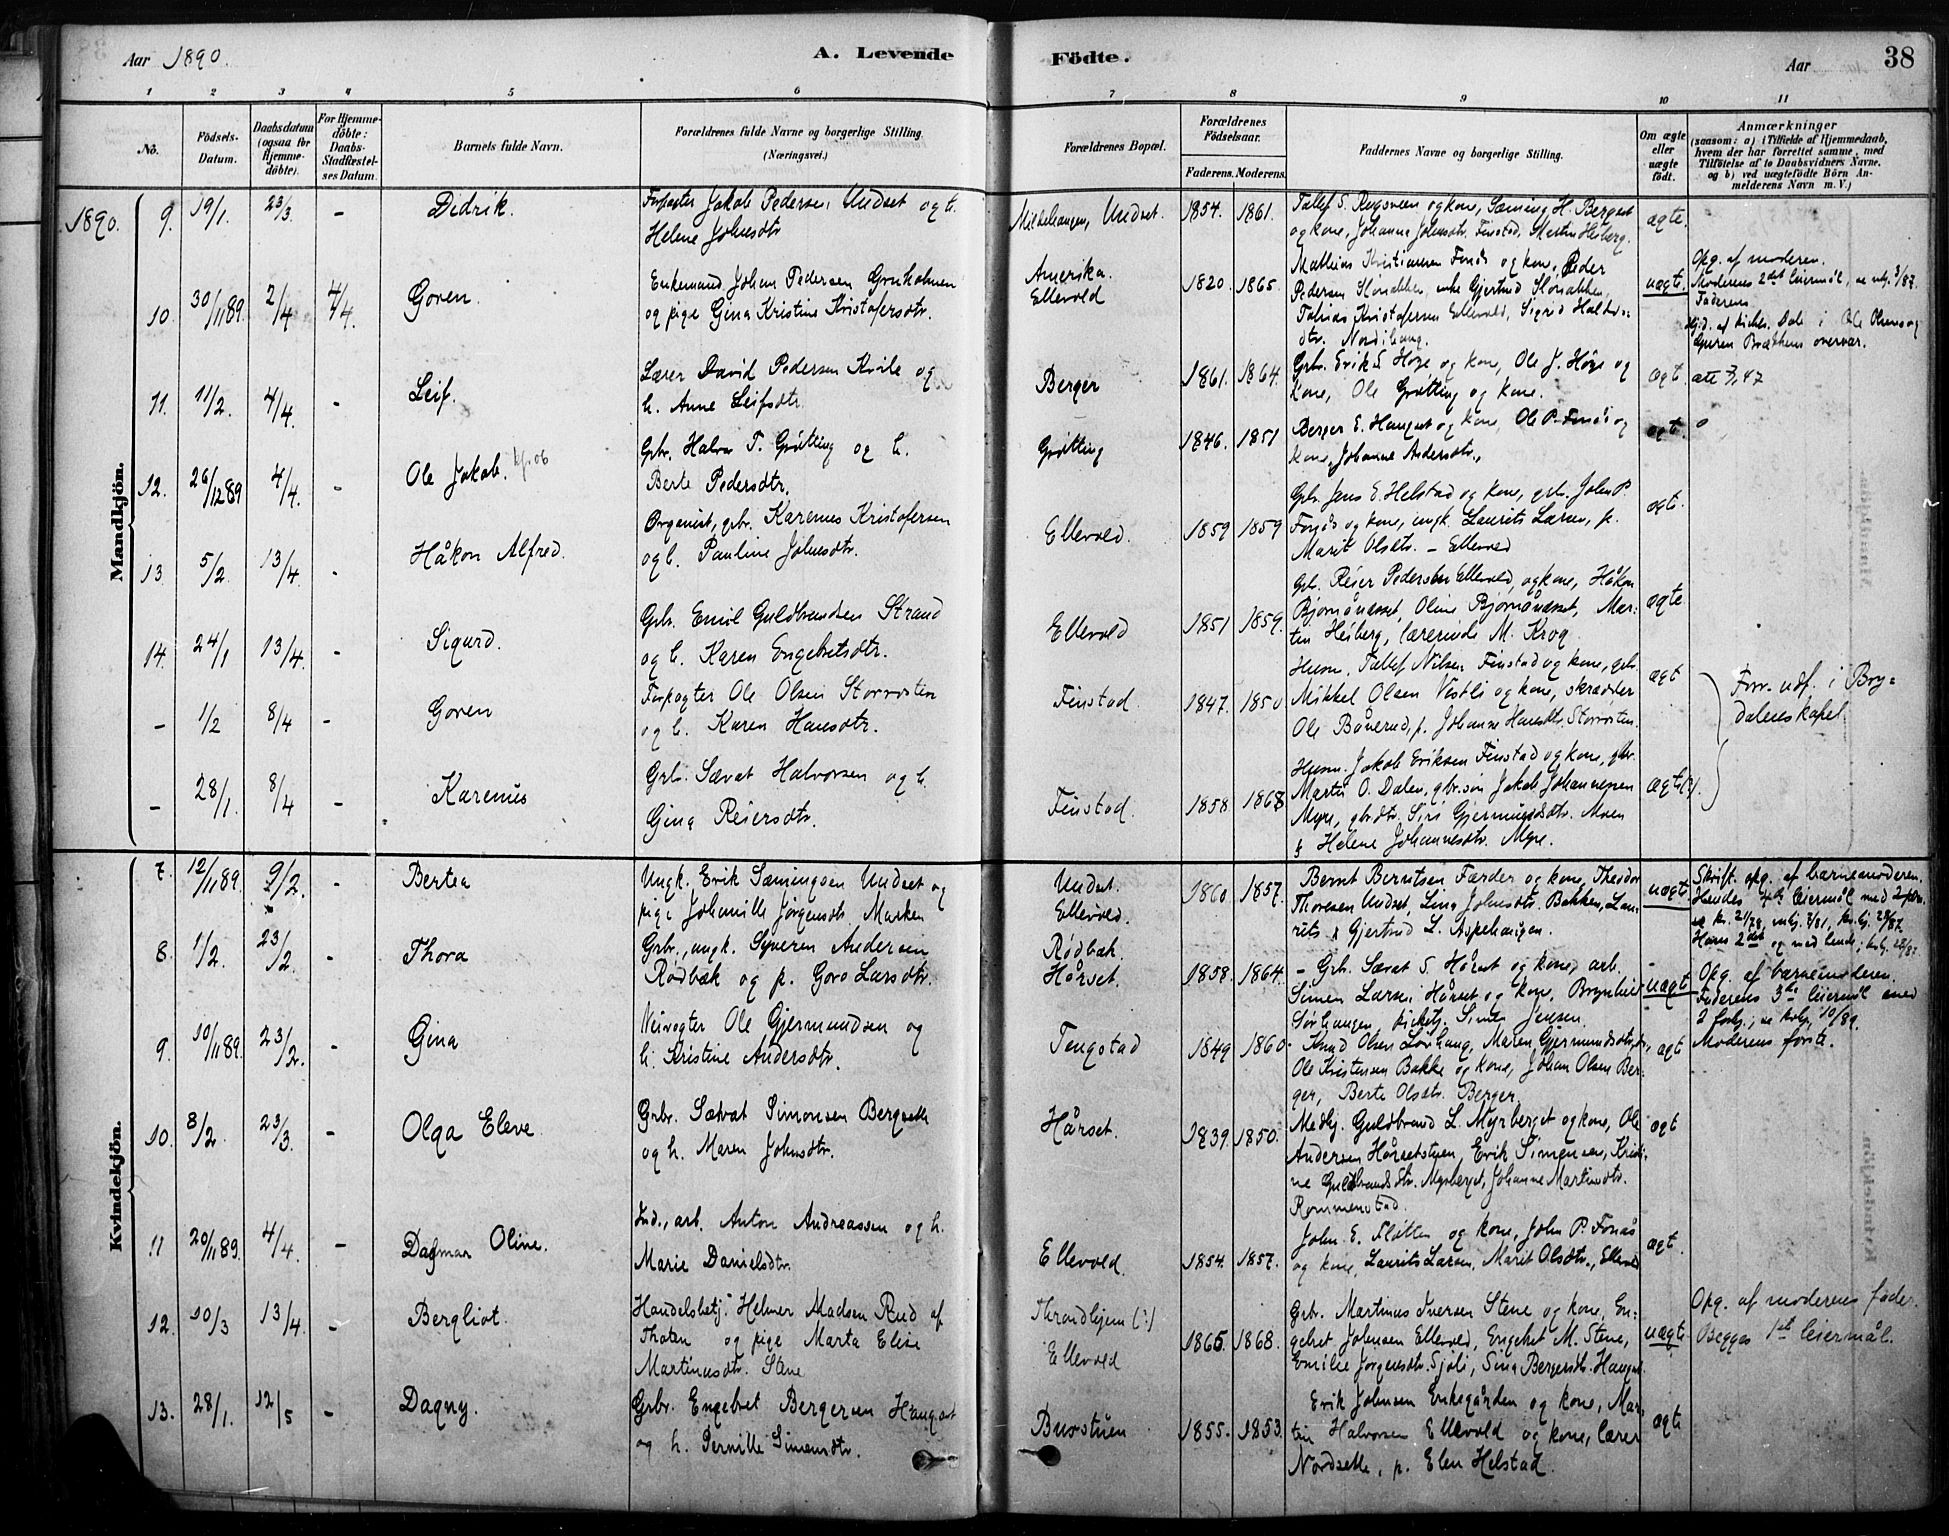 Aar 1890.
A. Levende Födte.
Aar
38
1 2 3 4 5 6 7 8 9 10 11
No.
Födsels-Datum.
Daabsdatum (ogsaa for Hjemme-döbte).
For Hjemme-döbte: Daabs-Stadfæstel-ses Datum.
Barnets fulde Navn.
Forældrenes fulde Navne og borgerlige Stilling.
(Næringsvei.)
Forældrenes Bopæl.
Forældrenes Födselsaar.
Faderens. Moderens.
Faddernes Navne og borgerlige Stilling.
Om ægte eller uægte födt.
Anmærkninger
(saasom: a) i Tilfælde af Hjemmedaab,
hvem der har forrettet samme, med
Tilföielse af to Daabsvidners Navne,
og b) ved uægtefödte Börn An-
melderens Navn m. V.)
Mandkjön.
1890. 9. 19/1. 23/3 - Didrik.
Forpagter Jakob Pedersen Undset og h.
Helene Johnsdtr
Undset. 1854. 1861.
og kone, Sæming H. Bergset
og kone, Johanne Johnsdtr. Finstad, Martin Heiberg.
ægte.
10. 30/11 89. 2/4 4/4. Goren.
Enkemand Johan Pedersen Grønholmen
og pige Gina Kristine Kristofersdtr.
Amerika.
Ellevold
1820. 1865.
Mathias Kristiansen Fonås og kone, Peder
Pedersen
Tobias Kristofersen Ellevold, Sigrid
dtr. Nordihaug.
uægt.
Opg. af moderen.
Moderens 2det leiermål,
Faderens
Ole Olsen og
overvær.
11. 11/2. 4/4. - Leif.
Lærer David Pedersen Kvile og
h. Anne Leifsdtr.
Berger
1861. 1864.
Grbr. Erik E. Høye og kone, Ole J. Høye og
kone, Ole Grøtting og kone.
ægt.
12. 26/12 89 4/4. - Ole Jakob.
Grbr. Halvor T. Grøtting og h.
Berte Pedersdtr.
Grøtting
1846. 1851
Berger E. Haugset og kone, Ole P. Fonås og
kone, Johanne Andersdtr.,
ægt.
13. 5/2. 13/4. - Håkon Alfred.
Organist, grbr. Karenus Kristofersen
og h. Pauline Johnsdtr.
Ellevold.
1859 1859
Grbr. Jens E. Helstad og kone, grbr. John P.
Fonås og kone, ungk. Laurits Larsen, p.
Marit Olsdtr. - Ellevold
ægt.
14. 24/1 13/4. - Sigurd.
Grbr. Emil Guldbrandsen Strand
og h. Karen Engebretsdtr.
Ellevold
1851 1859.
Grbr. Reier Pedersen Ellevold, og kone, Håkon
Bjørnånæsset, Oline Bjørnånæsset, Mar-
tin Heiberg, lærerinde M. Krog.
ægte
- 1/2 8/4 - Goren
Forpagter Ole Olsen Storrøsten
og h. Karen Hansdtr.
Finstad
1847. 1850
Husm. Tollef Nilsen Finstad og kone, grbr.
Mikkel Olsen Vestli og kone, skrædder
Ole Bånerud, p. Johanne Hansdtr. Storrøsten.
ægt
Forr. udf. i Bry-
dalens kapel.
- 28/1. 8/4 - Karenus
Grbr. Sævat Halvorsen og h.
Gina Reiersdtr.
Finstad.
1858 1868
Husm. Jakob Eriksen Finstad og kone, grbr.
Martin O. Dalen, grbr.søn Jakob Johannesen
Myre, grbrdtr. Siri Gjermundsdtr. Moen
& Helene Johannesdtr. Myre.
ægt(?).
Kvindekjön.
7. 12/11 89. 9/2. - Bertea
Ungk. Erik Sæmingsen Undset og
pige Johanille Jørgensdtr. Marken
Undset.
Ellevold.
1860 1857.
Bernt Berntsen Færder og kone, Theodor
Thoresen Undset, Lina Johnsdtr. Bakken, Lau-
rits & Gjertrud L. Aspehaugen.
uægt.
Skriftl. opg. af barnemoderen.
Hendes 4de leiermål med
8. 1/2. 23/2 - Thora
Grbr., ungk. Syveren Andersen
Rødbæk og p. Goro Larsdtr.
Rødbæk.
Hårset.
1858. 1864.
- Grbr. Sævat S. Hårset og kone, arb.
Simen Larsen Hårset og kone, Brynhild
Sørhaugen, Simen Jensen.
uægt
Opg. af barnemoderen.
Faderens 3die leiermål med
Moderens første.
9. 10/11 89. 23/2. - Gina
Veivogter Ole Gjermundsen og
h. Kristine Andersdtr.
Tengstad
1849 1860.
Knud Olsen Løvhaug, Maren Gjermundsdtr.,
Ole Kristensen Bakke og kone, Johan Olsen Ber-
ger, Berte Olsdtr. Berger.
ægt
10. 8/2. 23/3. - Olga Eleve.
Grbr. Sævat Simonsen Bergsette
og h. Maren Johnsdtr.
Hårset.
1839. 1850.
Medhj. Guldbrand L. Myrberget og kone, Ole
Andersen Hårsetstuen, Erik Simensen, Kristi-
ne Guldbrandsdtr. Myrberget, Johanne Martinsdtr.
Rommenstad.
ægt
11 20/11 89. 4/4. - Dagmar Oline.
Ind., arb. Anton Andreassen og h.
Marie Danielsdtr.
Ellevold.
1854. 1857.
John E. Fløtten og kone, John P. Fonås
og kone, Laurits Larsen, Marit Olsdtr., Ellevold
ægt.
12. 10/3 13/4. - Bergliot.
Handelsbetj. Helmer Madsen Rud af
Thoten og pige Marta Elise
Martinusdtr. Stene
Throndhjem (?)
Ellevold
1865 1868.
Grbr. Martinus Iversen Stene og kone, En-
gebret Johnsen Ellevold, Engebret M. Stene,
Emilie Jørgensdtr. Sjøli, Sina Bergersdtr. Haugset
uægte
Opg. af moderens fader.
Begges 1ste leiermål.
13. 28/1. 12/5 - Dagny.
Grbr. Engebret Bergersen Haugset
og h. Pernille Simensdtr.
Burstuen
1855. 1853.
Erik Johnsen Enkegården og kone, Mar-
tin Halvorsen Ellevold og kone, lærer
Nordsette, p. Elen Helstad.
ægte